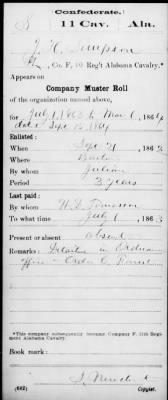 Confederate.
S 11 Cav. Ala.
J. H. Simpson
Co. F, 10 Reg't Alabama Cavalry.*
Appears on
Company Muster Roll
of the organization named above,
for July 1, 1863 to Mar 6, 1864
dated Sept 15 1864
Enlisted:
When Sept 21, 186
Where
By whom Julian
Period 3 years
Last paid:
By whom W. D. Thomason
To what time July 1, 1863
Present or absent absent
Remarks: Detailed in Ordnance
Office
*This company subsequently became Company F, 11th Regiment Alabama Cavalry.
Book mark:
(642) Copyist.